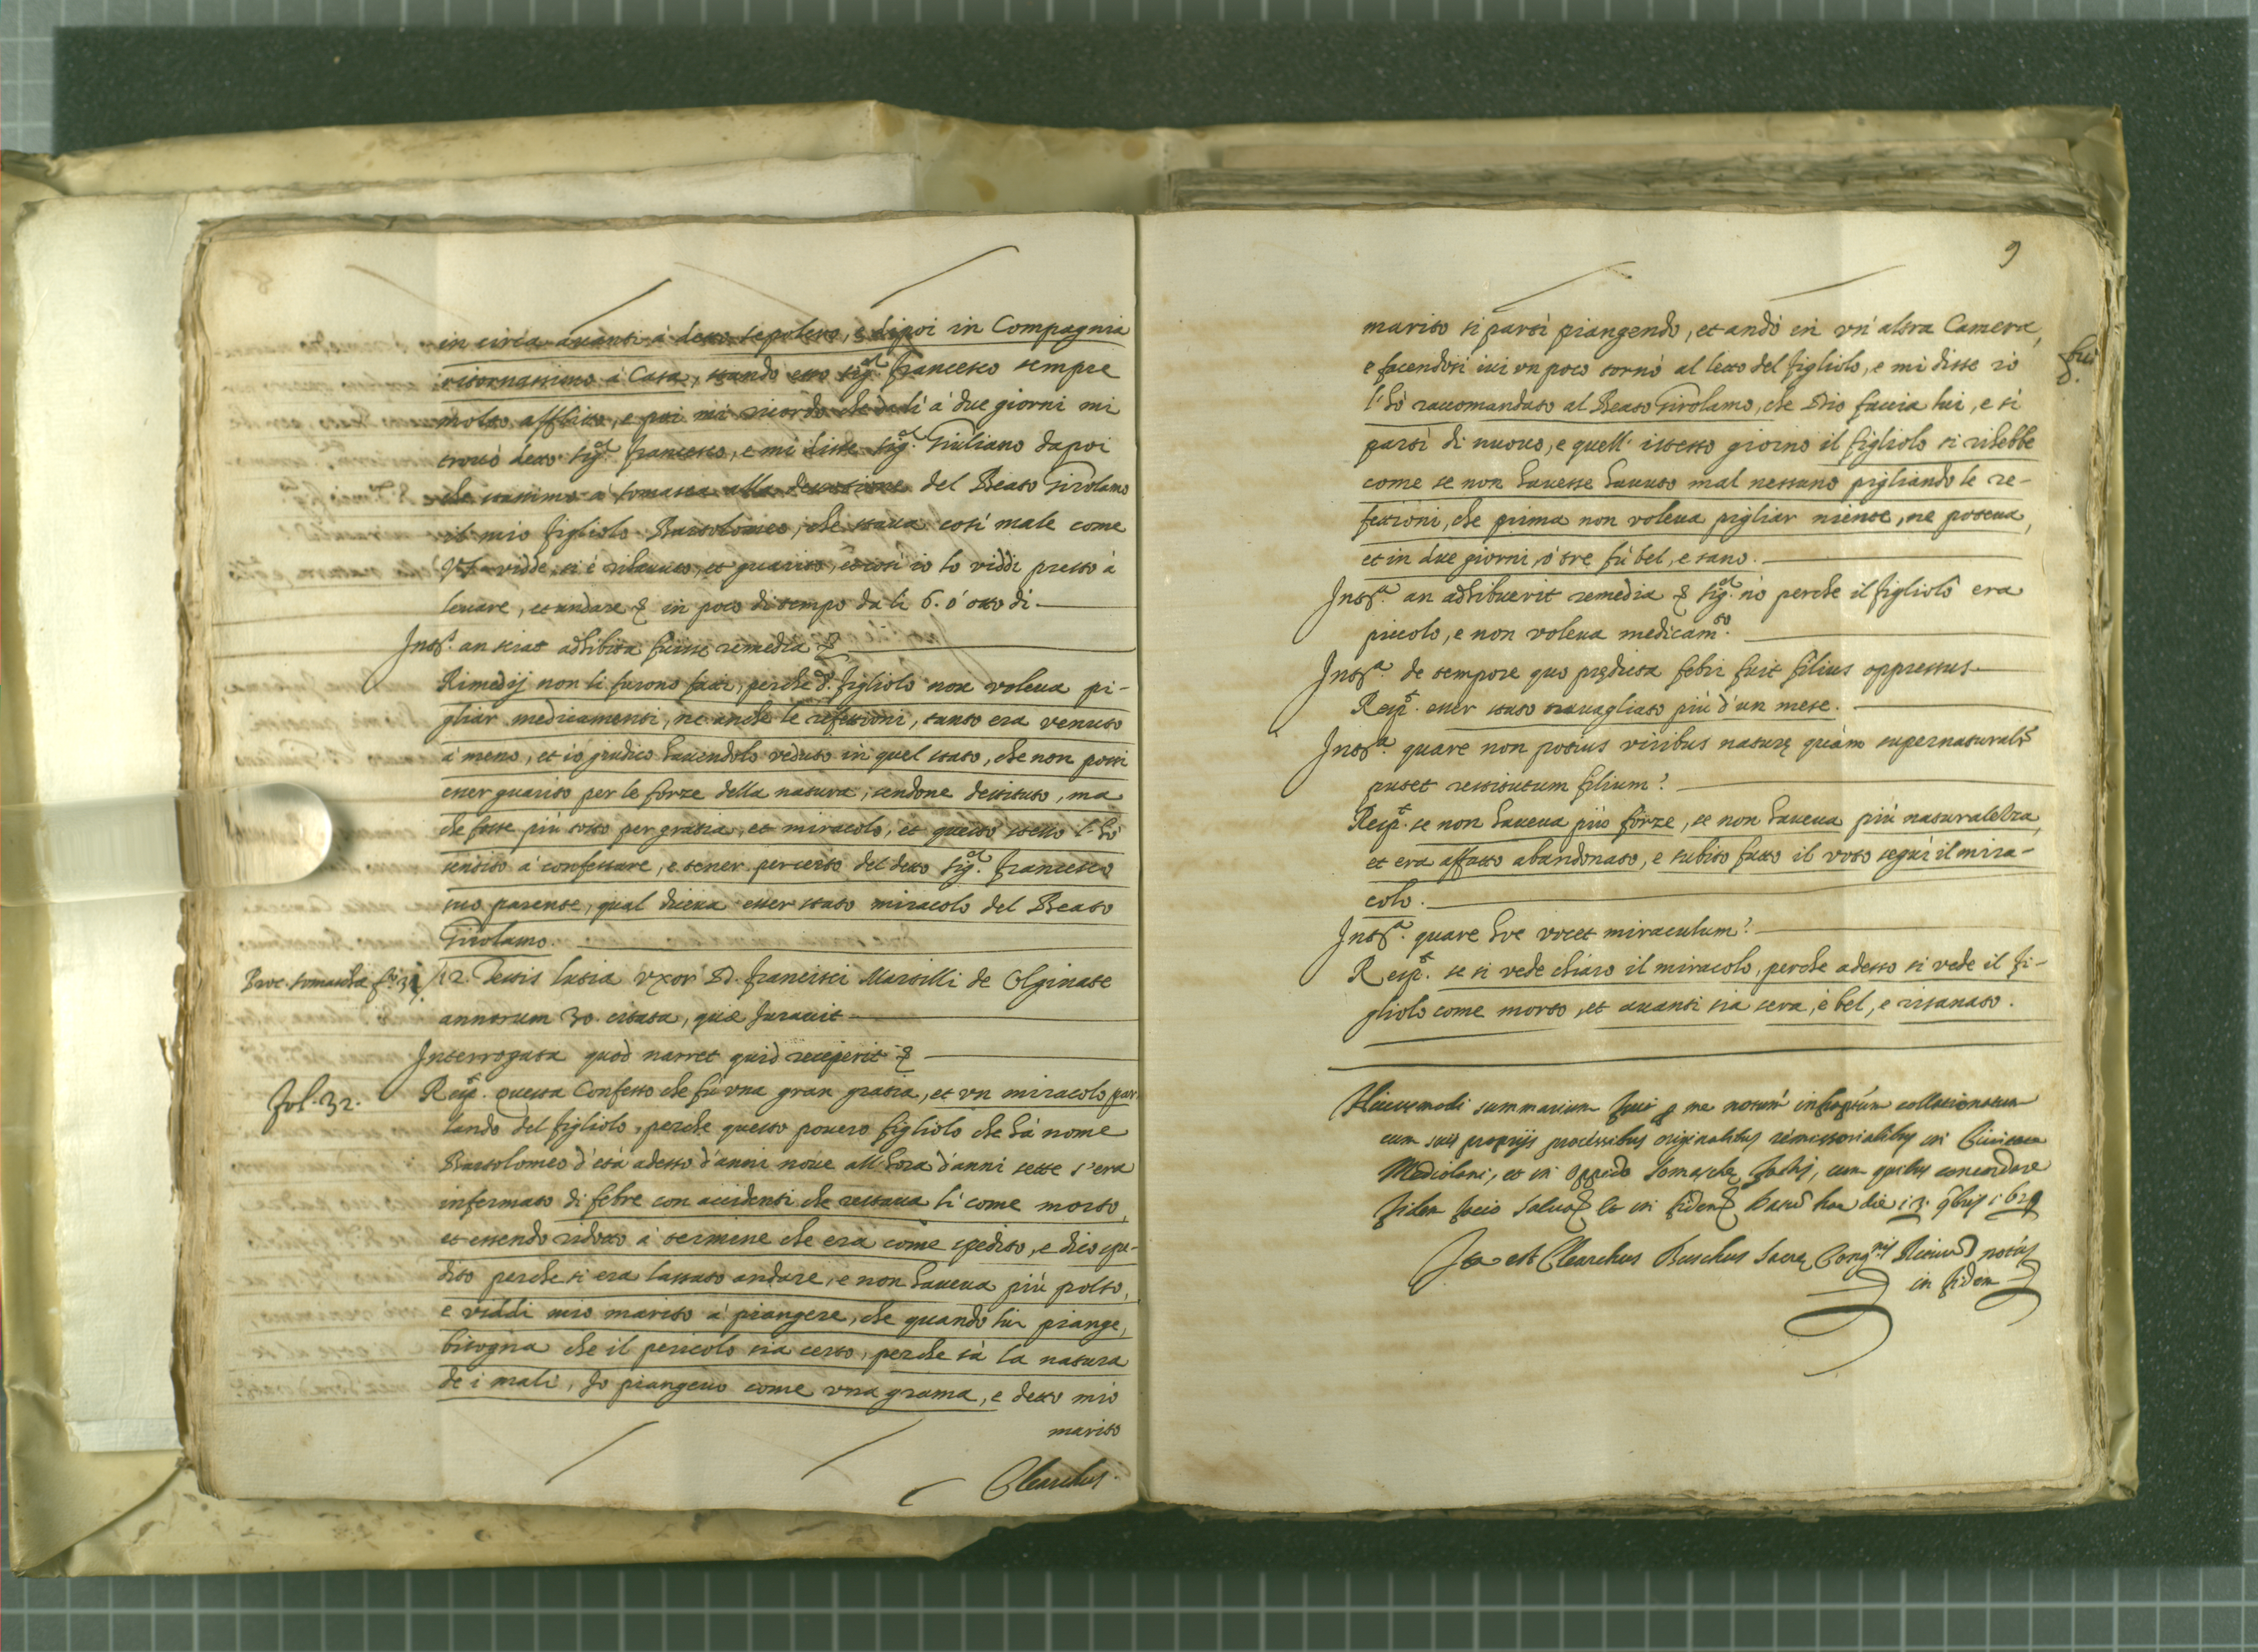 in circa avanti à detto sepolcro, e dipoi in Compagnia
ritornassimo à Casa, stando esso Sig.r Francesco sempre
molto afflitto, e poi mi ricordo che da lì à due giorni mi
trovò detto Sig.r Francesco, e mi disse Sig.r Giuliano dapoi
che stassimo à Somasca alla devotione del Beato Girolamo
il mio figliolo Bartolomeo, che stava così male come
V.S. vidde, si è rihavuto, et guarito, et così io lo viddi presto à
levare, et andare & in poco di tempo da lì 6. ò otto dì
Int.s an sciat adhibita fuisse remedia &
Rimedij non li furono fatti, perche d.o figliolo non voleva pi-
gliar medicamenti, ne anche le refettioni, tanto era venuto
à meno, et io giudico havendolo veduto in quel stato, che non possi
esser guarito per le forze della natura, sendone destituto, ma
che fosse più tosto per gratia, et miracolo, et questo istesso l'hò
sentito à confessare, e tener per certo del detto Sig.r Francesco
suo parente, qual diceva esser stato miracolo del Beato
Girolamo.
Proc. Somascha fo. 31
12. Testis Lucia uxor D. Francisci Marsilli de Olginate
annorum 30. citata, quæ Juravit
Interrogata quod narret quid receperit &
Fol. 32.
Resp.t Questa Confesso che fù una gran gratia, et un miracolo par-
lando del figliolo, perche questo povero figliolo che hà nome
Bartolomeo d'età adesso d'anni nove all'hora d'anni sette s'era
infermato di febre con accidenti che restava lì come morto,
et essendo ridotto à termine che era come spedito, e dico spe-
dito perche si era lassato andare, e non haveva più polso,
e viddi mio marito à piangere, che quando lui piange,
bisogna che il pericolo sia certo, perche sà la natura
de i mali, Jo piangevo come una grama, e detto mio
marito
Clearchus
9
marito si partì piangendo, et andò in un'altra Camera,
e facendosi ivi un poco tornò al letto del figliolo, e mi disse io
l'hò raccomandato al Beato Girolamo, che Dio faccia lui, e si
partì di nuovo, e quell'istesso giorno il figliolo si rihebbe
come se non havesse havuto mal nessuno pigliando le re-
fettioni, che prima non voleva pigliar niente, ne poteva,
et in due giorni, ò tre fù bel, e sano.
Int.a an adhibuerit remedia & Sig.r nò perche il figliolo era
piccolo, e non voleva medicam.to
Int.a de tempore quo prędicta febri fuit filius oppressus
Resp.t esser stato travagliato più d'un mese.
Int.a quare non potius viribus naturę quàm supernaturalr
putet restitutum filium?
Resp.t se non haveva più forze, se non haveva più naturalezza,
et era affatto abandonato, e subito fatto il voto seguì il mira-
colo.
Int.a quare hoc vocet miraculum?
Resp.t se si vede chiaro il miracolo, perche adesso si vede il fi-
gliolo come morto, et avanti sia sera, è bel, e risanato.
Huiusmodi summarium fuit p me notum infraptum collationatum
cum suis proprijs processibus originalibus remissorialibus in Civitate
Mediolani, et in oppido Somaschę factis, cum quibus concordare
fidem facio salvo & et in fidem & Datum hac die 13. 9bris 1629
Ita est Clearchus Buschus Sacrę Cong.nis Rituum notus
in fidem